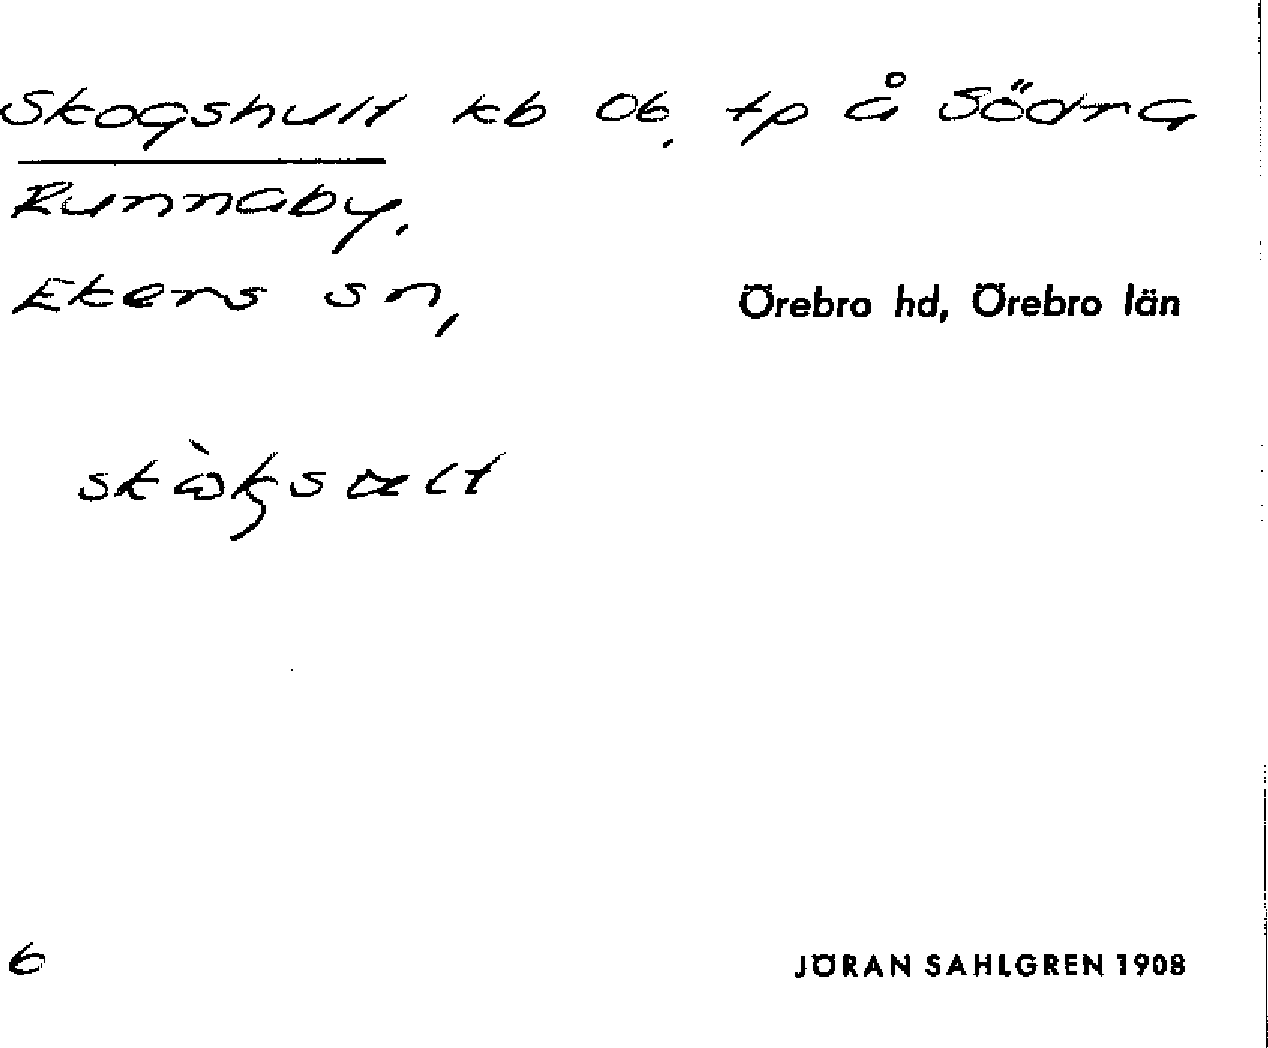 Skogshult kb 06, tp å Södra
Runnaby.
Ekers sn, Örebro hd, Örebro län
6 JÖRAN SAHLGREN 1908